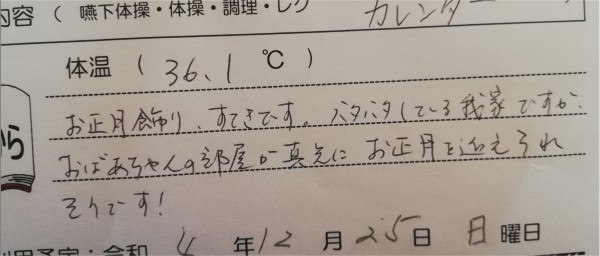 内容（ 嚥下体操・体操・調理・レク
カレンダー
体温 （ 36.1 ℃ ）
から
お正月飾り、すてきです。バタバタしている我家ですが、
おばあちゃんの部屋が真先にお正月を迎えられ
そうです!
利用予定・令和 4 年 12 月 25 日 日 曜日